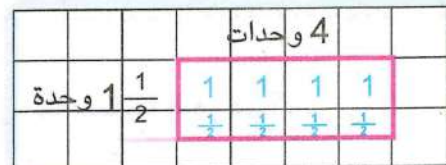 4 وحدات
1 1/2 وحدة
1 1 1 1
1/2 1/2 1/2 1/2